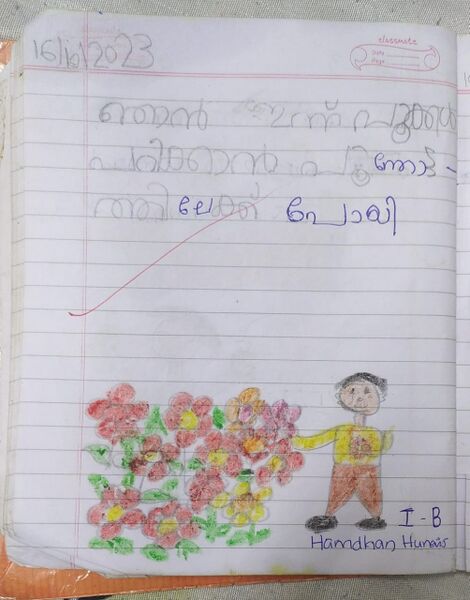 classmate
Date
Page
16/10/2023
ഞാൻ ഇന്ന് പൂക്കൾ
പറിക്കാൻ പൂന്തോട്ട-
ത്തിലേക്ക് പോയി
I-B
Hamdhan Hunais